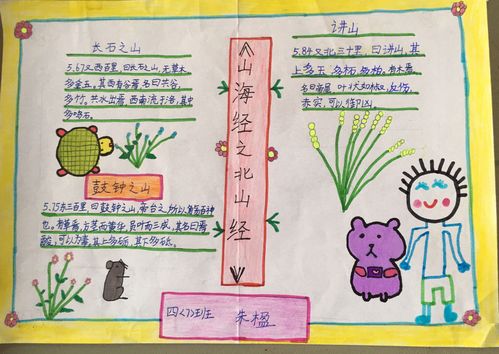 长石之山
5.67又西百里,曰长石之山,无草木
多金玉。其西有谷焉,名曰共谷,
多竹。共水出焉,西南流于洛,其中
多鸣石。
鼓钟之山
5.75东三百里,曰鼓钟之山,帝台之所以觞百神
也。有草焉,方茎而黄华,员叶而三成,其名曰焉
酸,可以为毒。其上多砺,其下多砥。
《山海经之北山经》
讲山
5.84又北三十里,曰讲山,其
上多玉,多柘,多柏。有木焉,
名曰帝屋,叶状如椒,反伤,
赤实,可以御凶。
四〈7〉班 朱楹